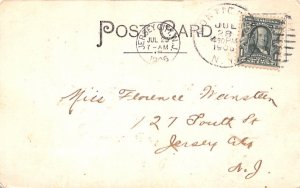 POST CARD
JERSEY CITY, N.J.
JUL 29
7-AM
1906
JUL
28
1906
N.Y.
Miss Florence Wanstein
127 South St
Jersey City
N.J.